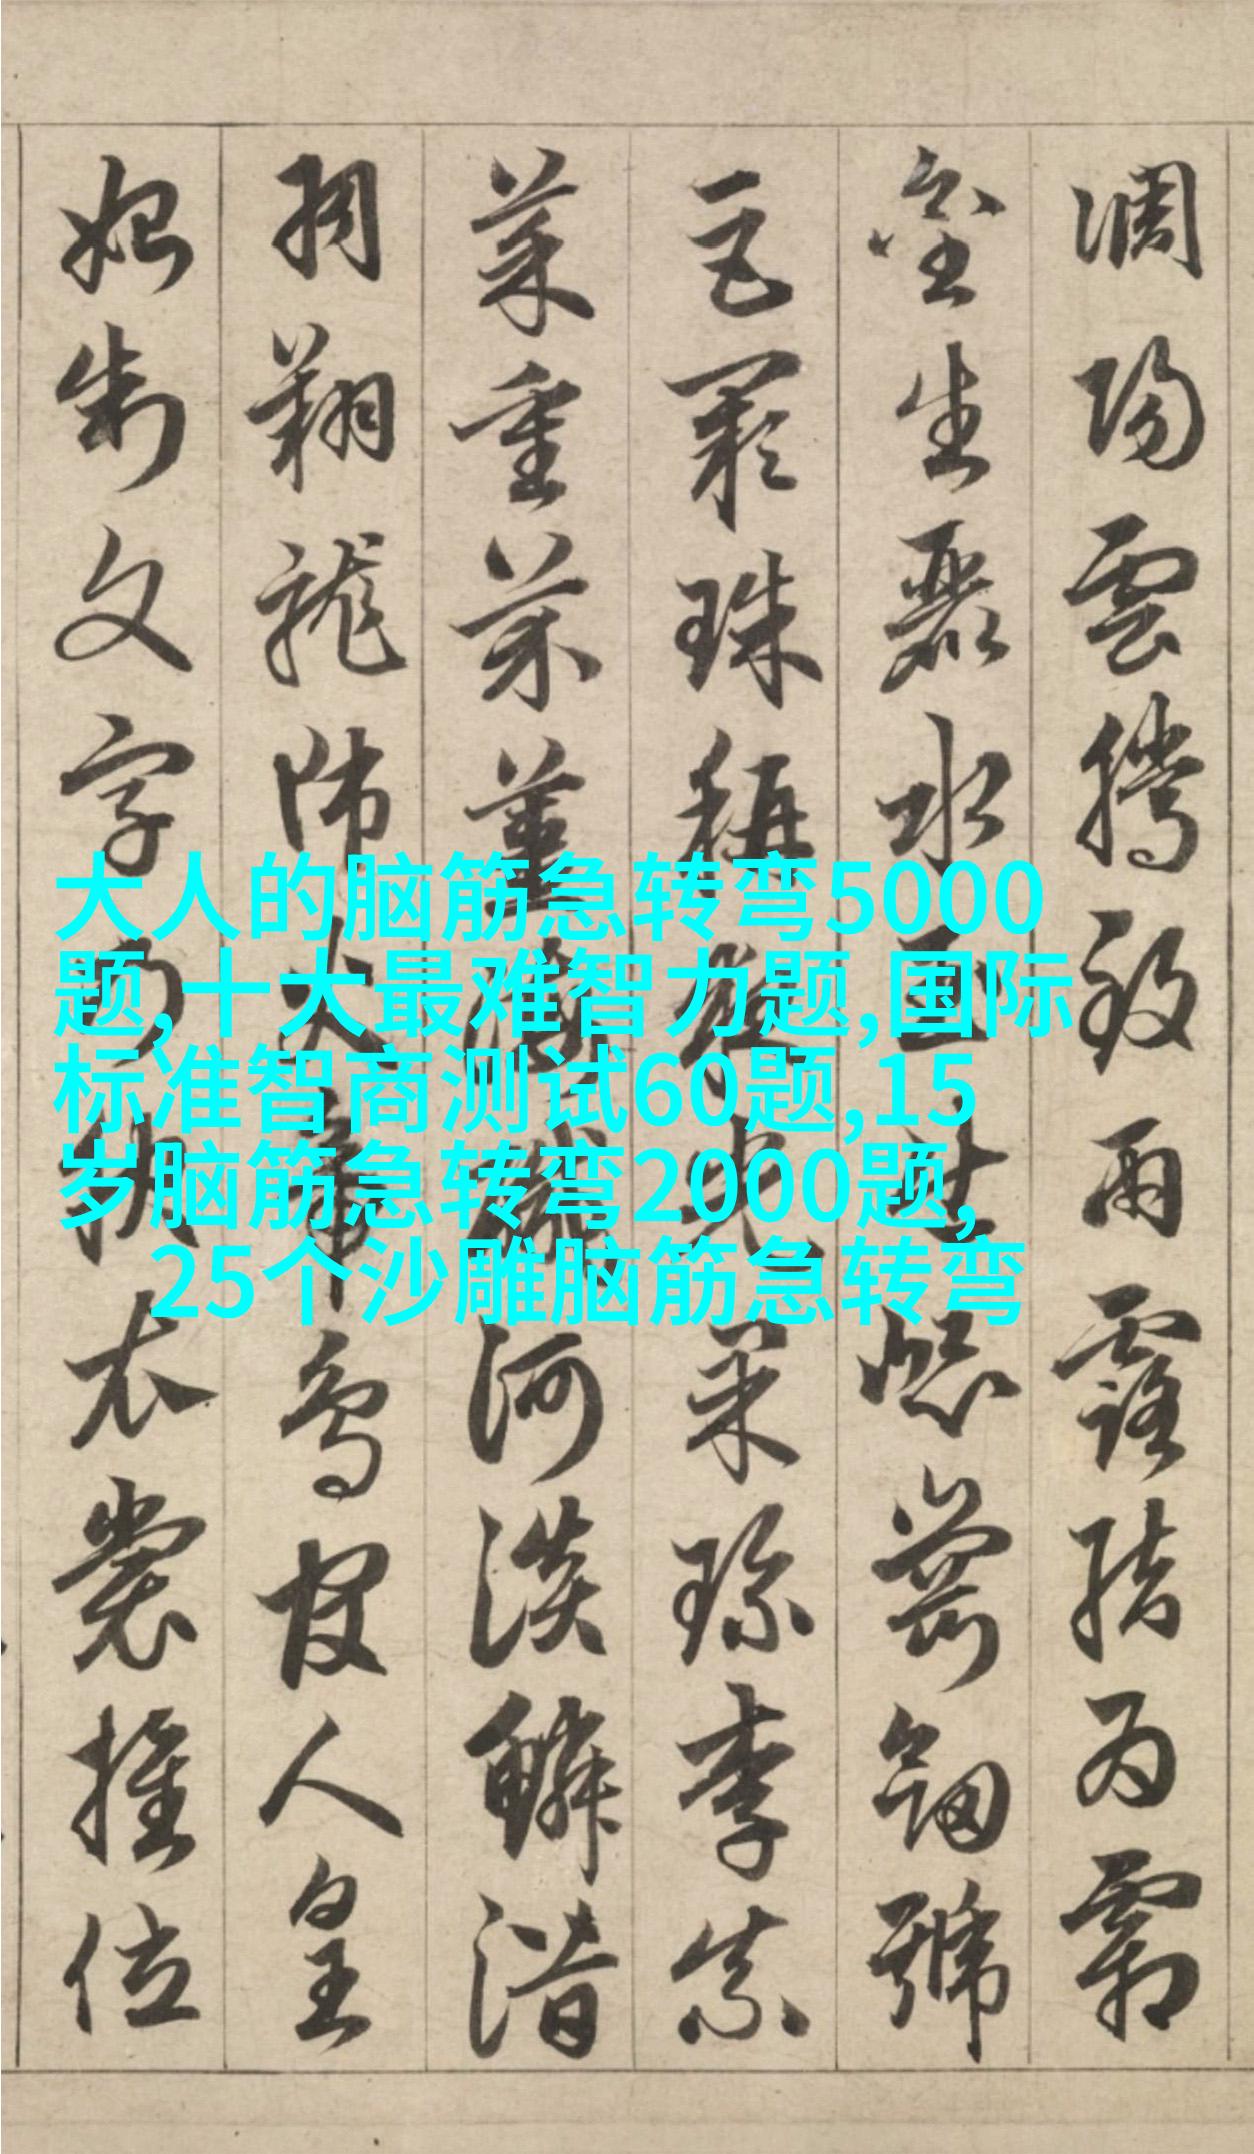 調陽雲騰致雨露結為霜
金生麗水玉出崑崗劍號
巨闕珠稱夜光果珍李柰
菜重芥薑海鹹河淡鱗潛
羽翔龍師火帝鳥官人皇
始制文字乃服衣裳推位
大人的脑筋急转弯5000
题,十大最难智力题,国际
标准智商测试60题,15
岁脑筋急转弯2000题,
25个沙雕脑筋急转弯